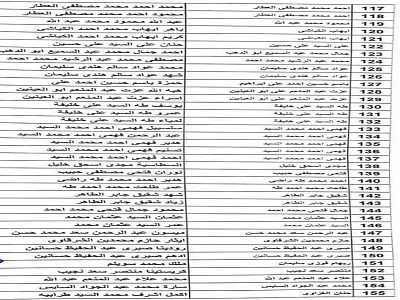 117 احمد محمد مصطفى العطار محمد احمد محمد مصطفى العطار
118 محمد مصطفى العطار محمود احمد محمد مصطفى العطار
119 محمود محمد عبد الله عبد الله محمود محمد عبد الله
120 ايهاب الكباشى باهر ايهاب محمد احمد الكباشى
121 ايهاب الكباشى كريم ايهاب محمد احمد الكباشى
122 على السيد على حسين حنان على السيد على حسين
123 جمال محمد عبد السميع ابو الدهب احمد جمال محمد عبد السميع ابو الدهب
124 محمد عبد الرشيد محمد احمد مصطفى محمد عبد الرشيد محمد احمد
125 عواد سالم هندى سليمان محمد عواد سالم هندى سليمان
126 عواد سالم هندى سليمان شهد عواد سالم هندى سليمان
127 باسم حسين احمد على ابراهيم حمزة باسم حسين احمد على
128 عزت عبد المنعم على ابو العينين هبه الله عزت عبد المنعم ابو العينين
129 عزت عبد المنعم على ابو العينين اسراء عزت عبد المنعم ابو العينين
130 طه السيد على خليفة يوسف طه السيد على خليفة
131 طه السيد على خليفة عمرو طه السيد على خليفة
132 طه السيد على خليفة لمياء طه السيد على خليفة
133 فهمى احمد محمد السيد سلسبيل فهمى احمد محمد السيد
134 فهمى احمد محمد السيد عبد الرحمن فهمى احمد محمد السيد
135 فهمى احمد محمد السيد هدير فهمى احمد محمد السيد
136 فهمى احمد محمد السيد تسنيم فهمى احمد محمد السيد
137 فهمى احمد محمد السيد احمد فهمى احمد محمد السيد
138 مجدى اسحق خليل انسطاسية مجدى اسحق خليل
139 فتحى مصطفى حبيب نوران فتحى مصطفى حبيب
140 محمد طه راضى هدير احمد محمد طه راضى
141 طلعت محمد احمد طه عمر طلعت محمد احمد طه
142 شفيق جابر الطاهر شهد شفيق جابر الطاهر
143 شفيق جابر الطاهر زياد شفيق جابر الطاهر
144 جمال فتحى محمد احمد محمود جمال فتحى محمد احمد
145 السيد عثمان محمد عثمان السيد عثمان محمد
146 السيد عثمان محمد عمر السيد عثمان محمد
147 عبد الرحمن سعد محمد حسن ميسون عبد الرحمن سعد محمد حسن
148 حازم محمدين الشرقاوى ايلاف حازم محمدين الشرقاوى
149 صبرى عبد الحفيظ حسانين رودينا صبرى عبد الحفيظ حسانين
150 صبرى عبد الحفيظ حسانين ادهم صبرى عبد الحفيظ حسانين
151 ملك محمد سويلم
152 منتصر سعد نجيب كريستينا منتصر سعد نجيب
153 علاء عبد المنعم عبد الله محمد علاء عبد المنعم عبد الله
154 محمد عبد الجواد السايس سارة محمد عبد الجواد السايس
155 اكمل اشرف محمد السيد طرابيه